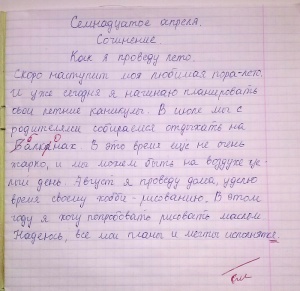 Семнадцатое апреля.
Сочинение.
Как я проведу лето.
Скоро наступит моя любимая пора-лето.
И уже сегодня я начинаю планировать
свои летние каникулы. В июле мы с
родителями собираемся отдыхать на
Балканах. В это время еще не очень
жарко, и мы можем быть на воздухе це-
лый день. Август я проведу дома, уделю
время своему хобби - рисованию. В этом
году я хочу попробовать рисовать маслом.
Надеюсь, все мои планы и мечты исполнятся.